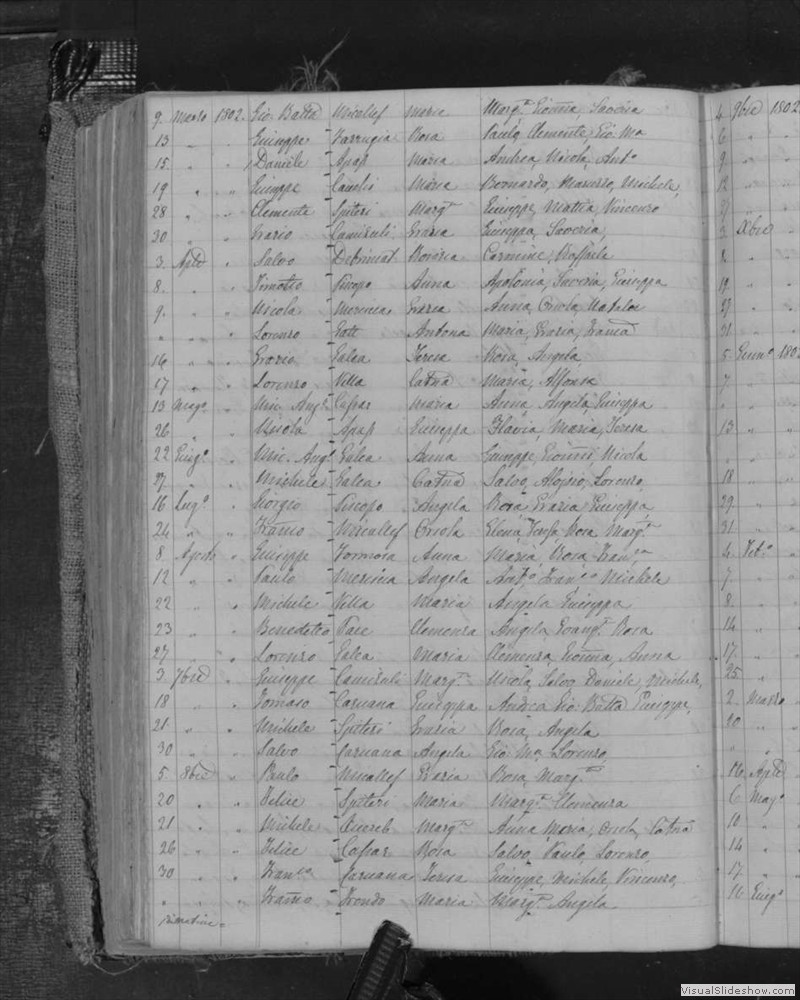 9 Marzo 1802 Gio. Batta Micallef Maria Marg.a Gio&nna, Saveria
13 " " Giuseppe Farrugia Rosa Paulo, Clemente, Gio Ma
15 " " Daniele Apap Maria Andrea, Nicola, Ant.o
19 " " Giuseppe Maria Bernardo, Michele,
28 " " Clemente Spiteri Marg.a Giuseppe, Mattia, Vincenzo
30 " " Grazio Camisuli Grazia Giuseppa, Saveria,
3 Aple " Salvo Rosaria Carmine, Raffaela
8 " " Timoteo Piscopo Anna Apolonia, Saveria, Giuseppa
9 " " Nicola Grazia Anna, Orsola, Natala
" " " Lorenzo Gatt Antona Maria, Grazia, Franca
16 " " Grazio Galea Teresa Rosa, Angela,
17 " " Lorenzo Villa Catna Maria, Alfonsa
13 Mag.o " Mic. Ang.o Caspar Maria Anna, Angela, Giuseppa
26 " " Nicola Apap Giuseppa Flavia, Maria, Teresa
22 Giug.o " Mic. Ang.o Galea Anna Giuseppe, Nicola
27 " " Michele Galea Catna Salvo, Aloisio, Lorenzo
16 Lug.o " Giorgio Piscopo Angela Rosa, Grazia, Giuseppa,
24 " " Franco Micallef Orsola Elena, Teresa, Rosa, Marg.a
8 Agosto " Giuseppe Formosa Anna Maria, Rosa, Fran.ca
12 " " Paulo Angela Ant.o, Fran.co, Michele
22 " " Michele Villa Maria Angela, Giuseppa
23 " " Benedetto Pace Clemenza Angela, Evang.a, Rosa
27 " " Lorenzo Galea Maria Clemenza, Anna
3 7bre " Giuseppe Camisuli Marg.a Nicola, Salvo, Daniele, Michele,
18 " " Tomaso Caruana Giuseppa Andrea, Gio Batta, Giuseppe,
21 " " Michele Spiteri Grazia Rosa, Angela
30 " " Salvo Caruana Angela Gio Ma, Lorenzo,
5 8bre " Paulo Micallef Grazia Rosa, Marg.a
20 " " Felice Spiteri Maria Marg.a, Clemenza
21 " " Michele Zuereb Marg.a Anna Maria, Orsola, Catna
26 " " Felice Caspar Rosa Salvo, Paulo, Lorenzo,
30 " " Fran.co Caruana Teresa Giuseppe, Michele, Vincenzo,
" " " Franco Trondo Maria Marg.a, Angela
4 9bre 1802
6 "
9 "
12 "
27 "
3 Xbre
8 "
19 "
27 "
31 "
5 Genn.o 180
7 "
" "
13 "
18 "
29 "
31 "
4 Feb.o
7 "
8 "
14 "
17 "
25 "
2 Marzo
20 "
" "
16 Aple
6 Mag.o
10 "
14 "
17 "
16 Giug.o
VisualSlideshow.com